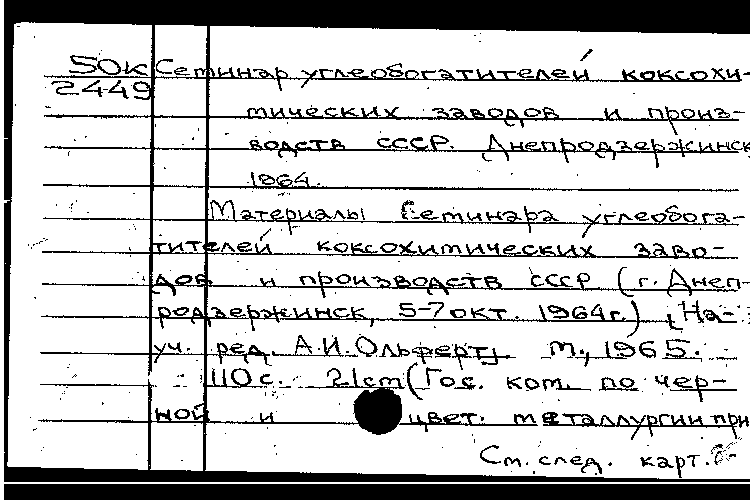 50к Семинар углеобогатителей коксохи-
2449
мических заводов и произ-
водств СССР. Днепродзержинск
1964.
Материалы Семинара углеобога-
тителей коксохимических заво-
дов и производств СССР (г. Днеп-
родзержинск, 5-7 окт. 1964г.) [На-
уч. ред. А.И. Ольферт]. М., 1965.
110 с. 21 cm (Гос. ком. по чер-
ной и цвет. металлургии при
См. след. карт.